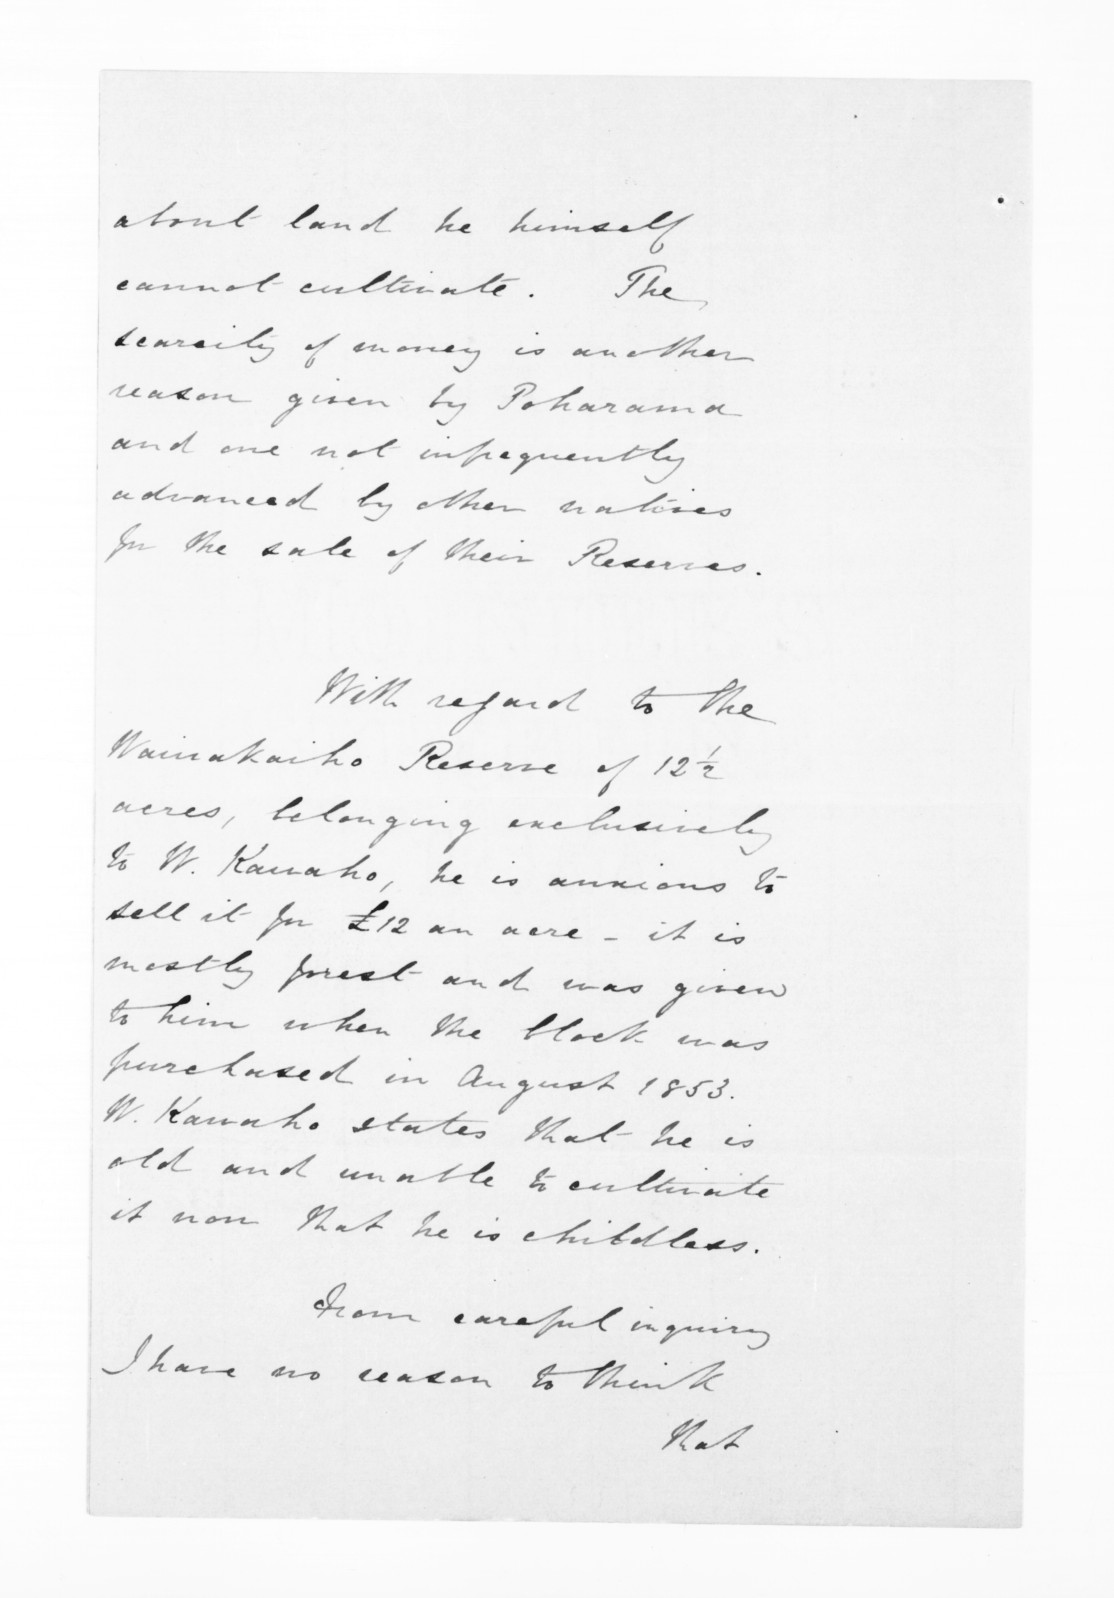 about land he himself
cannot cultivate. The
scarcity of money is another
reason given by Poharama
and one not infrequently
advanced by other natives
for the sale of their Reserves.
With regard to the
Waiwakaiho Reserve of 12 1/2
acres, belonging exclusively
to W. Kawaho, he is anxious to
sell it for £12 an acre - it is
mostly forest and was given
to him when the block was
purchased in August 1853.
W. Kawaho states that he is
old and unable to cultivate
it now that he is childless.
From careful inquiry
I have no reason to think
that